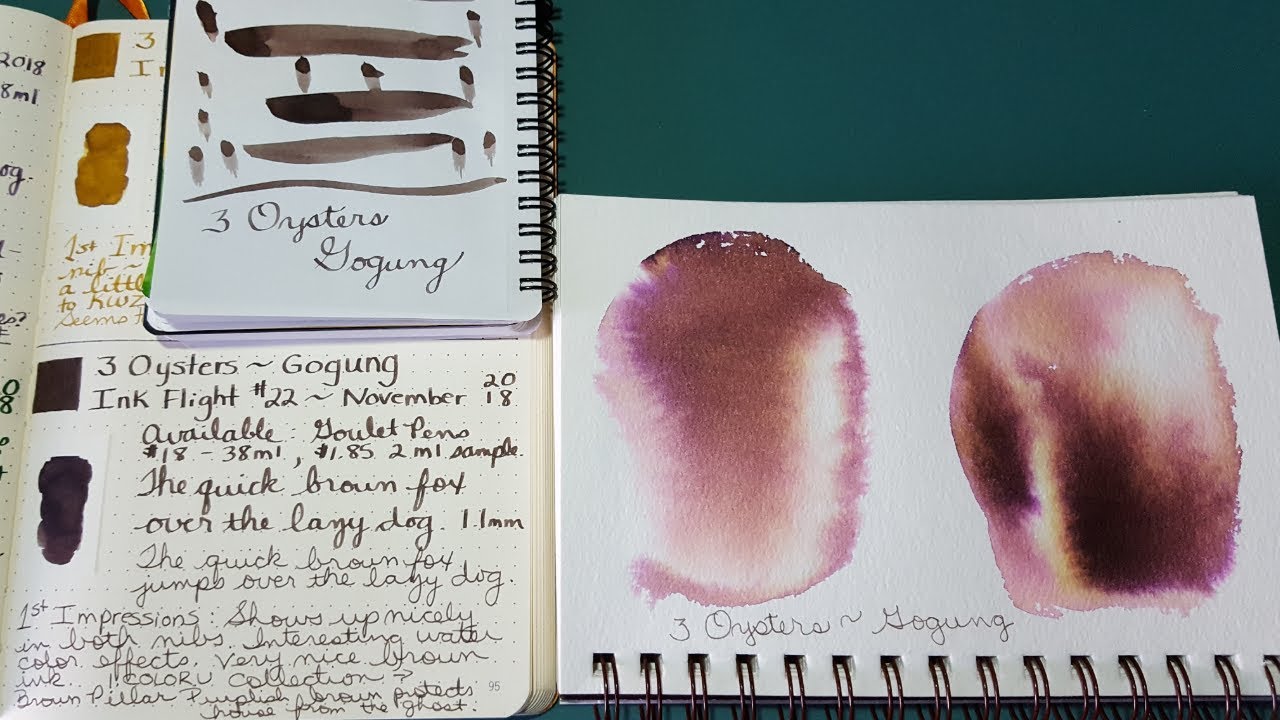 2018
8ml
og.
es?
0
8
3
In
1st Im
nib ~
a little
to KWZ
Seems t
3 Oysters
Gogung
3 Oysters ~ Gogung
Ink Flight #22 ~ November 20 18
Available : Goulet Pens
$18 - 38ml, $1.85 2 ml sample.
The quick brown fox
over the lazy dog. 1.1mm
The quick brown fox
jumps over the lazy dog.
1st Impressions : Shows up nicely
in both nibs. Interesting water
color effects. Very nice brown
ink... I.COLORU Collection?
Brown Pillar Purplish brown protects
house from the ghost.
95
3 Oysters ~ Gogung